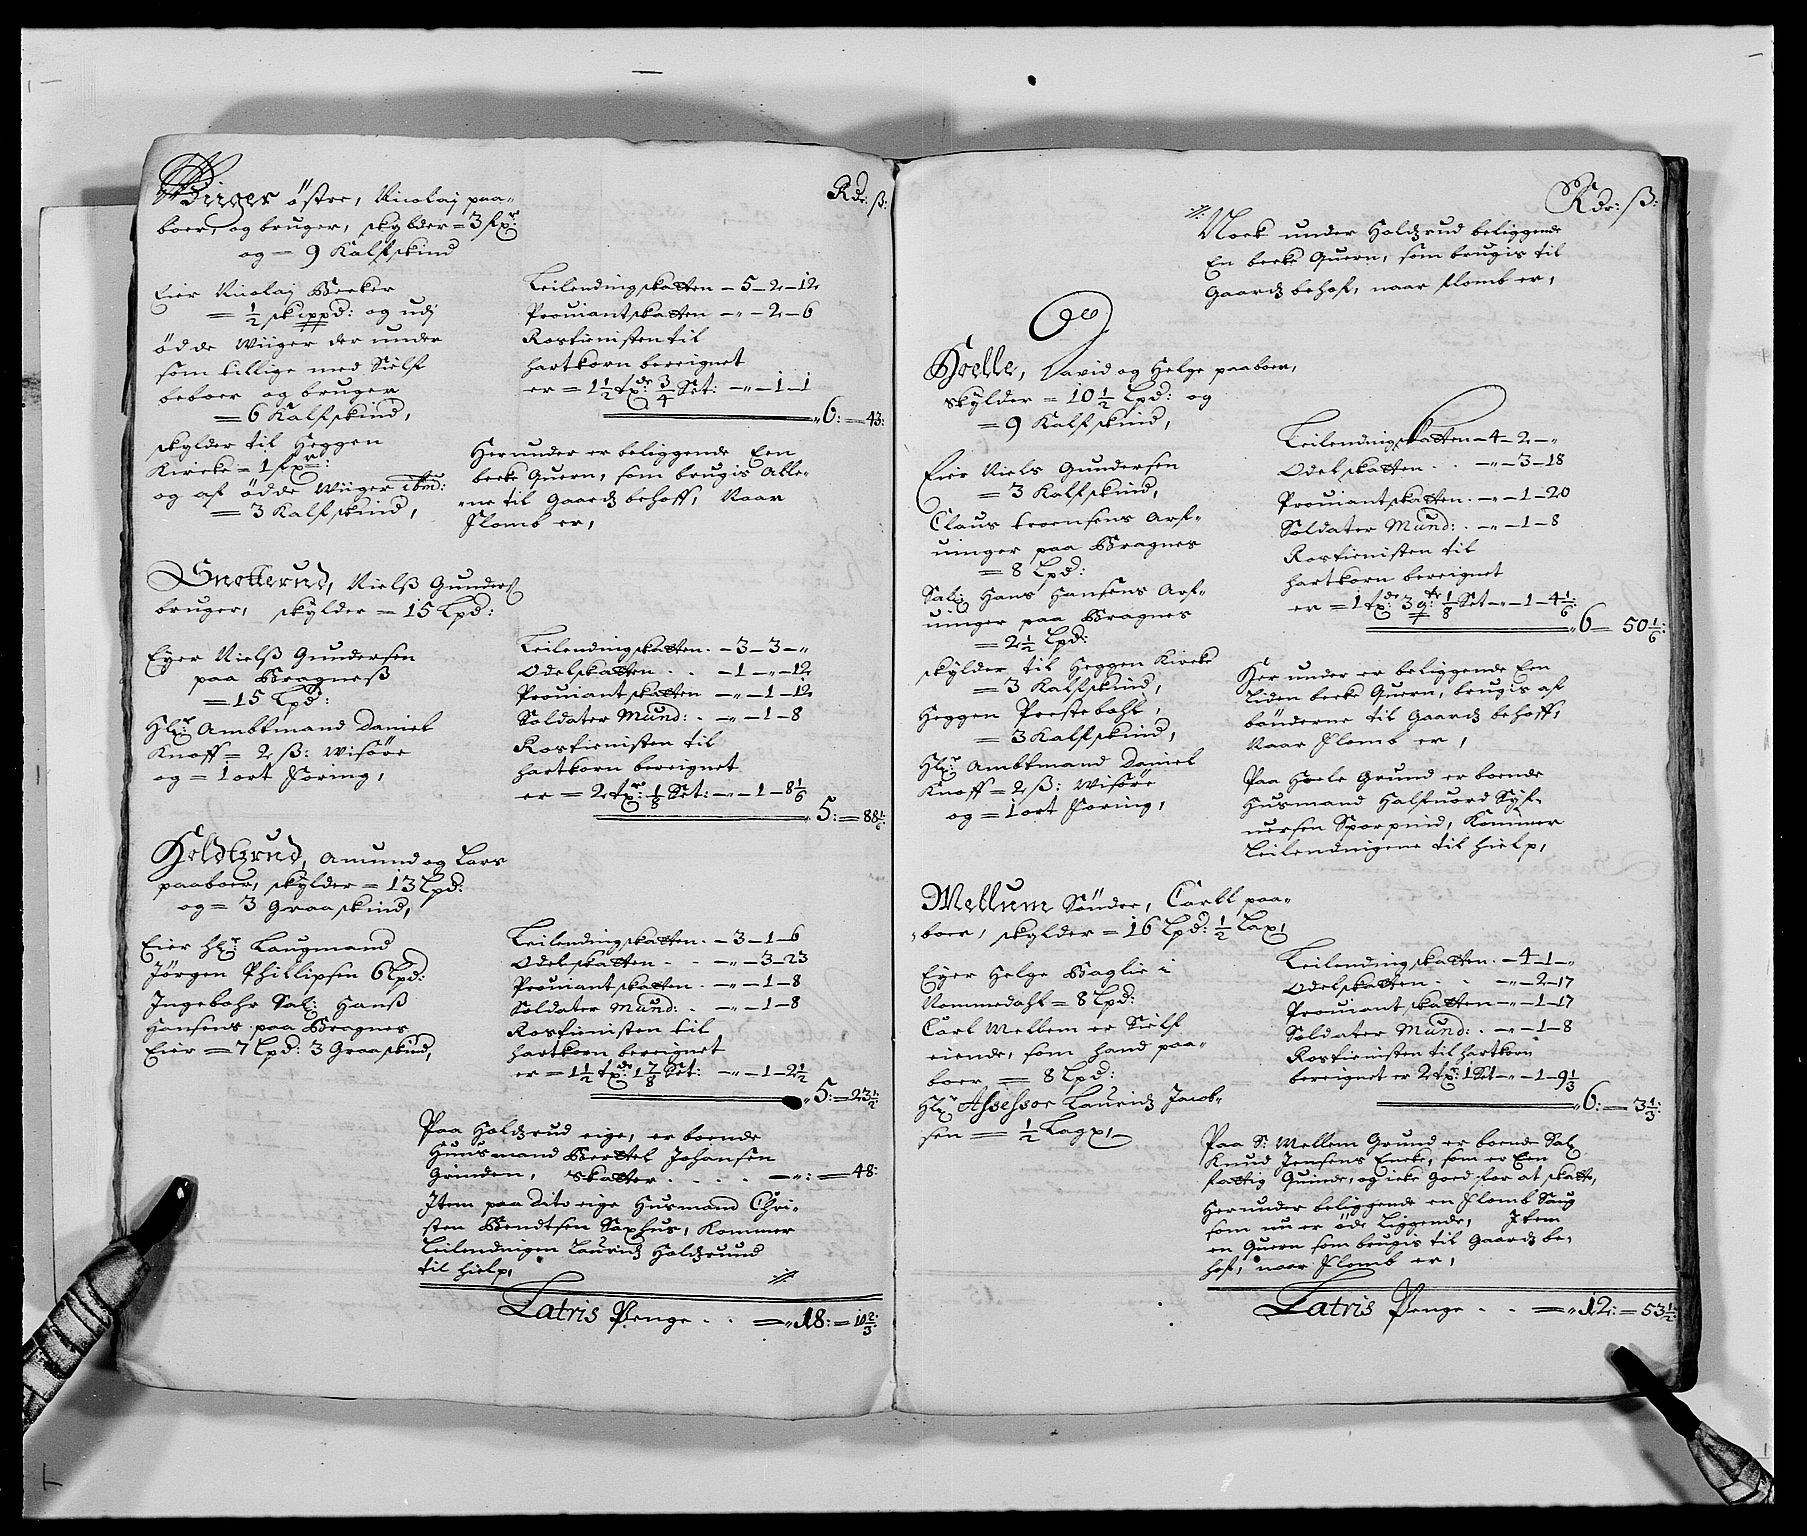 Wiiger östre, Nicolaj paa-
boer, og bruger, skylder = 3 fx:
og = 9 Kalfskind
Rdr: ß:
Eier Nicolaj Becker
= ½ skippd: og udj
ödde Wiiger der under
som tillige med Sielf
beboer og bruger
= 6 Kalfskind,
skylder til Heggen
Kircke = 1 fx:
og af ödde Wiiger ibm:
= 3 Kalfskind,
Leilendingskatten – 5 – 2 – 12
Prouiantskatten – „ – 2 – 6
Rostienisten til
hartkorn bereignet
er = 1½ tx: ¾ Set: – „ – 1 – 1
6: = 43:
Herunder er beliggende Een
becke Quern, som brugis Alle-
ne til Gaardz behoff, Naar
Flomb er,
Snellerud, Nielß Gunders:
bruger, skylder = 15 Lpd:
Eyer Nielß Gundersen
paa Bragneß
= 15 Lpd:
Hlr: Ambtmand Daniel
Knoff = 2 ß: Wisöre
og = 1 ort Foring,
Leilendingskatten. – 3 – 3 – „
Odelskatten . . – 1 – „ – 12
Prouiantskatten – „ – 1 – 12
Soldater Mund: . – „ – 1 – 8
Rostienisten til
hartkorn bereignet
er = 2 tx: ⅛ Set: – „ – 1 – 8⅙
5: = 88⅙
Holdtzrud, Amund og Lars
paaboer, skylder = 13 Lpd:
og = 3 Graaskind,
Eier Hlr: Laugmand
Jörgen Phillipsen 6 Lpd:
Ingebohr Sal: Hanß
Hansens paa Bragnes
Eier = 7 Lpd: 3 Graaskind,
Leilendingskatten. – 3 – 1 – 6
Odelskatten . . – „ – 3 – 23
Prouiantskatten . – „ – 1 – 8
Soldater Mund: . – „ – 1 – 8
Rostienisten til
hartkorn bereignet
er = 1½ tx: 1⅞ Set: – „ – 1 – 2½
5: = 23½
Paa Holdzrud eige, er boende
Huusmand Berttel Johansen
Grinden, Skatter . . . . – „: = 48:
Item paa dito eige Husmand Chri-
sten Bendtsen Saxhus, Kommer
Leilendingen Lauridz Holdzrund
til hielp,
Latris Penge . . = „ 18: = 10⅔:
Rdr: ß:
Nock under Holdzrud beliggende
En becke Quern, som brugis til
Gaardz behof, naar flomb er,
Hoelle, David og Helge paaboer,
skylder = 10½ Lpd: og
= 9 Kalfskind,
Eier Niels Gundersen
= 3 Kalfskind,
Claus troensens Arf-
uinger paa Bragnes
= 8 Lpd:
Sal: Hans Hansens Arf-
uinger paa Bragnes
= 2½ Lpd:
skylder til Heggen Kircke
= 3 Kalfskind,
Heggen Prestebohl,
= 3 Kalfskind,
Hlr: Ambtmand Daniel
Knoff = 2 ß: Wisöre
og = 1 ort Foring,
Leilendingskatten – 4 – 2 – „
Odelskatten . . – „ – 3 – 18
Prouiantskatten. – „ – 1 – 20
Soldater Mund: . – „ – 1 – 8
Rostienisten til
hartkorn bereignet
er = 1 tx: 3 q: ⅛ Set – „ – 1 – 4⅙
6 = 50⅙:
Her under er beliggende Een
Liden becke Quern, brugis af
bönderne til Gaardz behoff,
Naar Flomb er,
Paa Hoele Grund er boende
Husmand Halfuord Syf-
uersen Sporpind, Kommer
Leilendingene til hielp,
Mellum Söndre, Carll paa-
boer, skylder = 16 Lpd: ½ Lax,
Eyer Helge Baglie i
Nommedahl = 8 Lpd:
Carl Mellem er Sielf
eiende, som hand paa-
boer = 8 Lpd:
Hlr: Assessor Lauridz Jacob-
sen = ½ Lagx,
Leilendingskatten. – 4 – 1 – „
Odelskatten . . – „ – 2 – 17
Prouiantskatten – „ – 1 – 17
Soldater Mund: . – „ – 1 – 8
Rostienisten til hartkorn
bereignet er 2 tx: 1 Set – „ – 1 – 9⅓
6: = 3⅓:
Paa S: Mellem Grund er boende Sal:
Knud Jensens Encke, som er Een
fattig Quinde, og icke Goed for at skatte,
Herunder beliggende en Flomb Saug
som nu er öde Liggende, Item
en Quern som brugis til Gaardz be-
hof, naar Flomb er,
Latris Penge . . = „ 12: = 53½